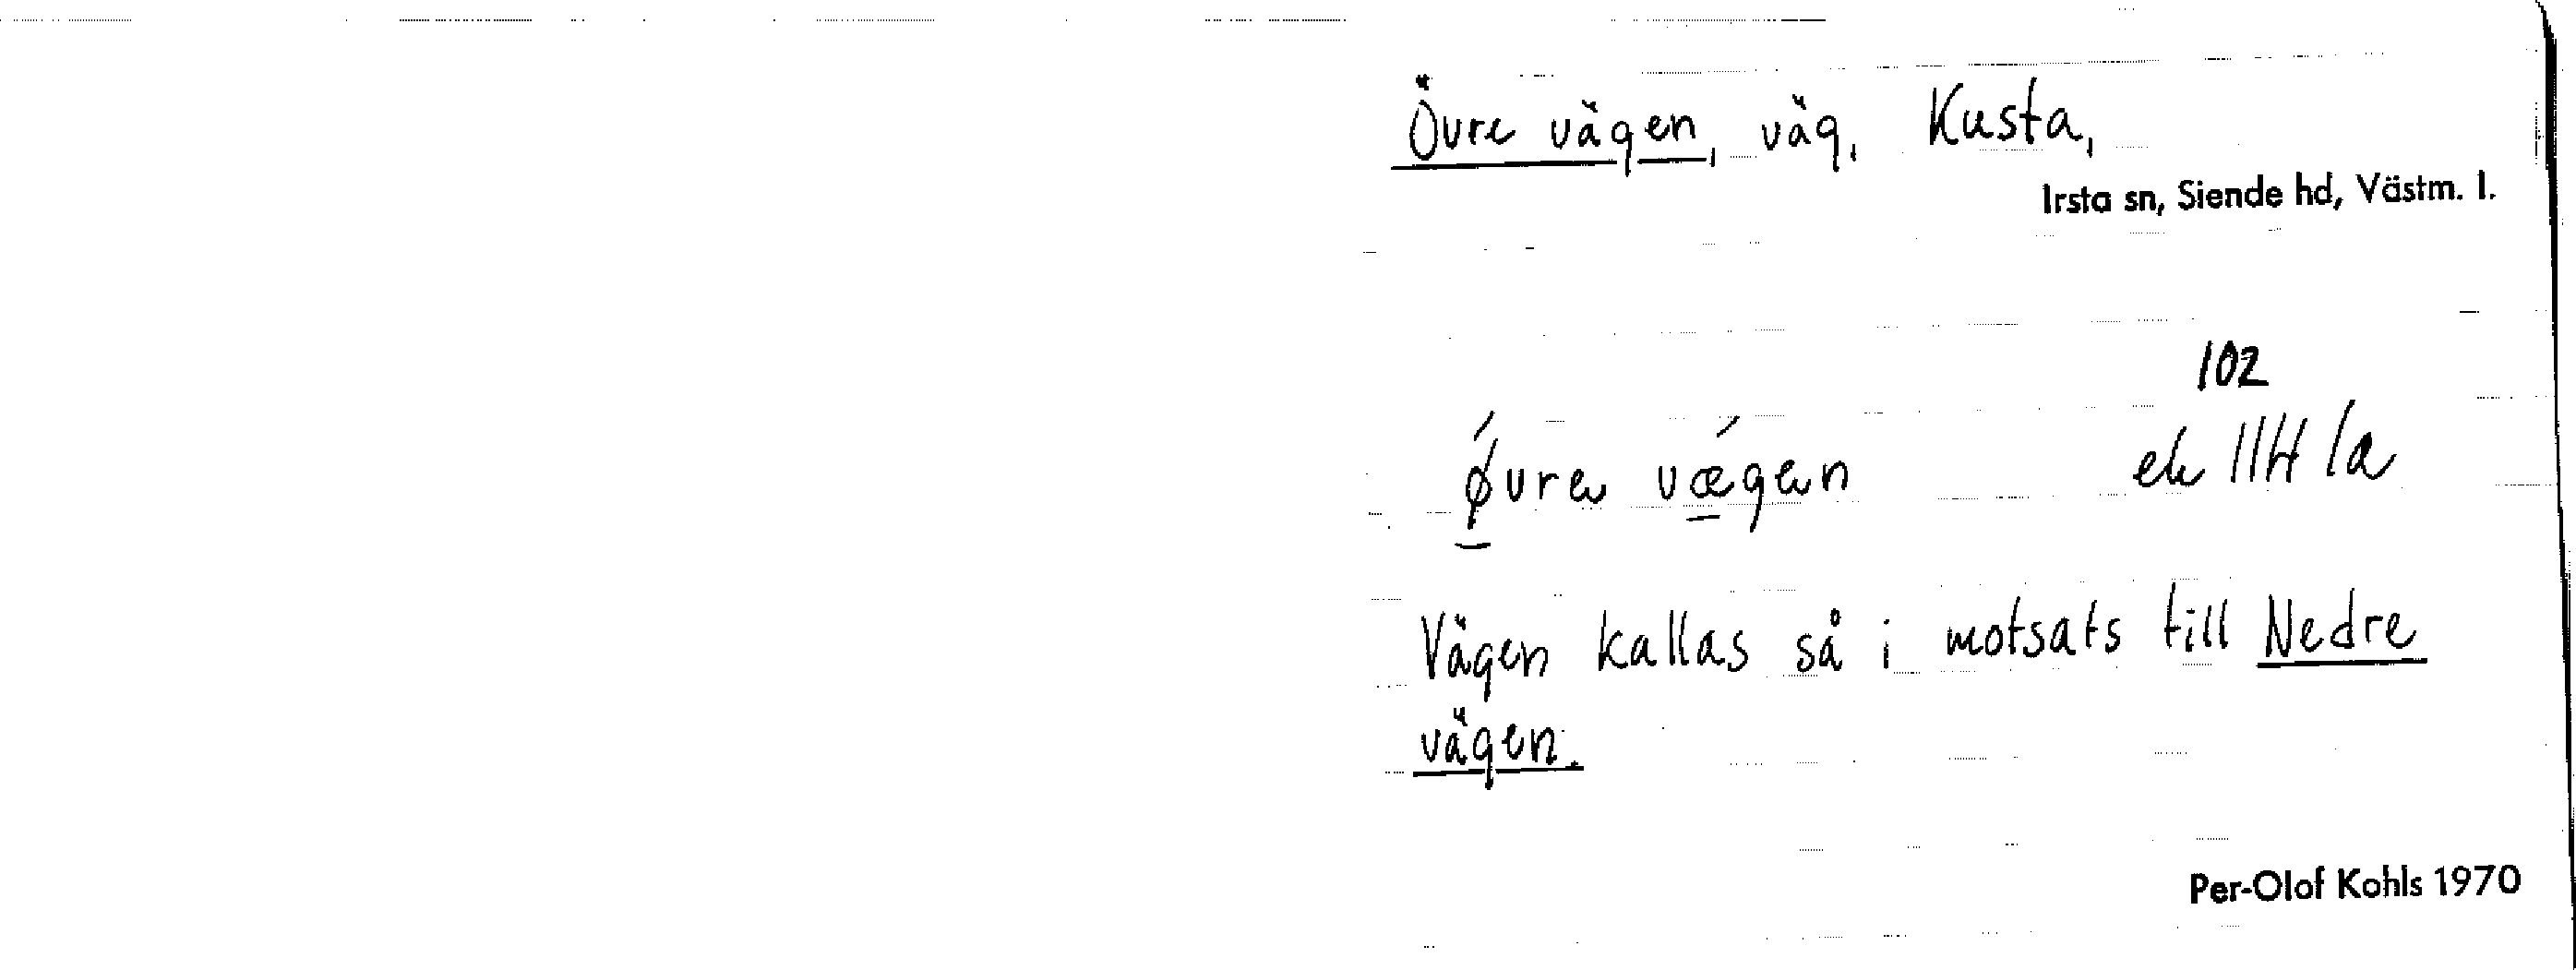 Övre vägen, väg, Kusta,
Irsta sn, Siende hd, Västm. l.
102
øvre vægen ek 11H 1a
Vägen kallas så i motsats till Nedre
vägen.
Per-Olof Kohls 1970